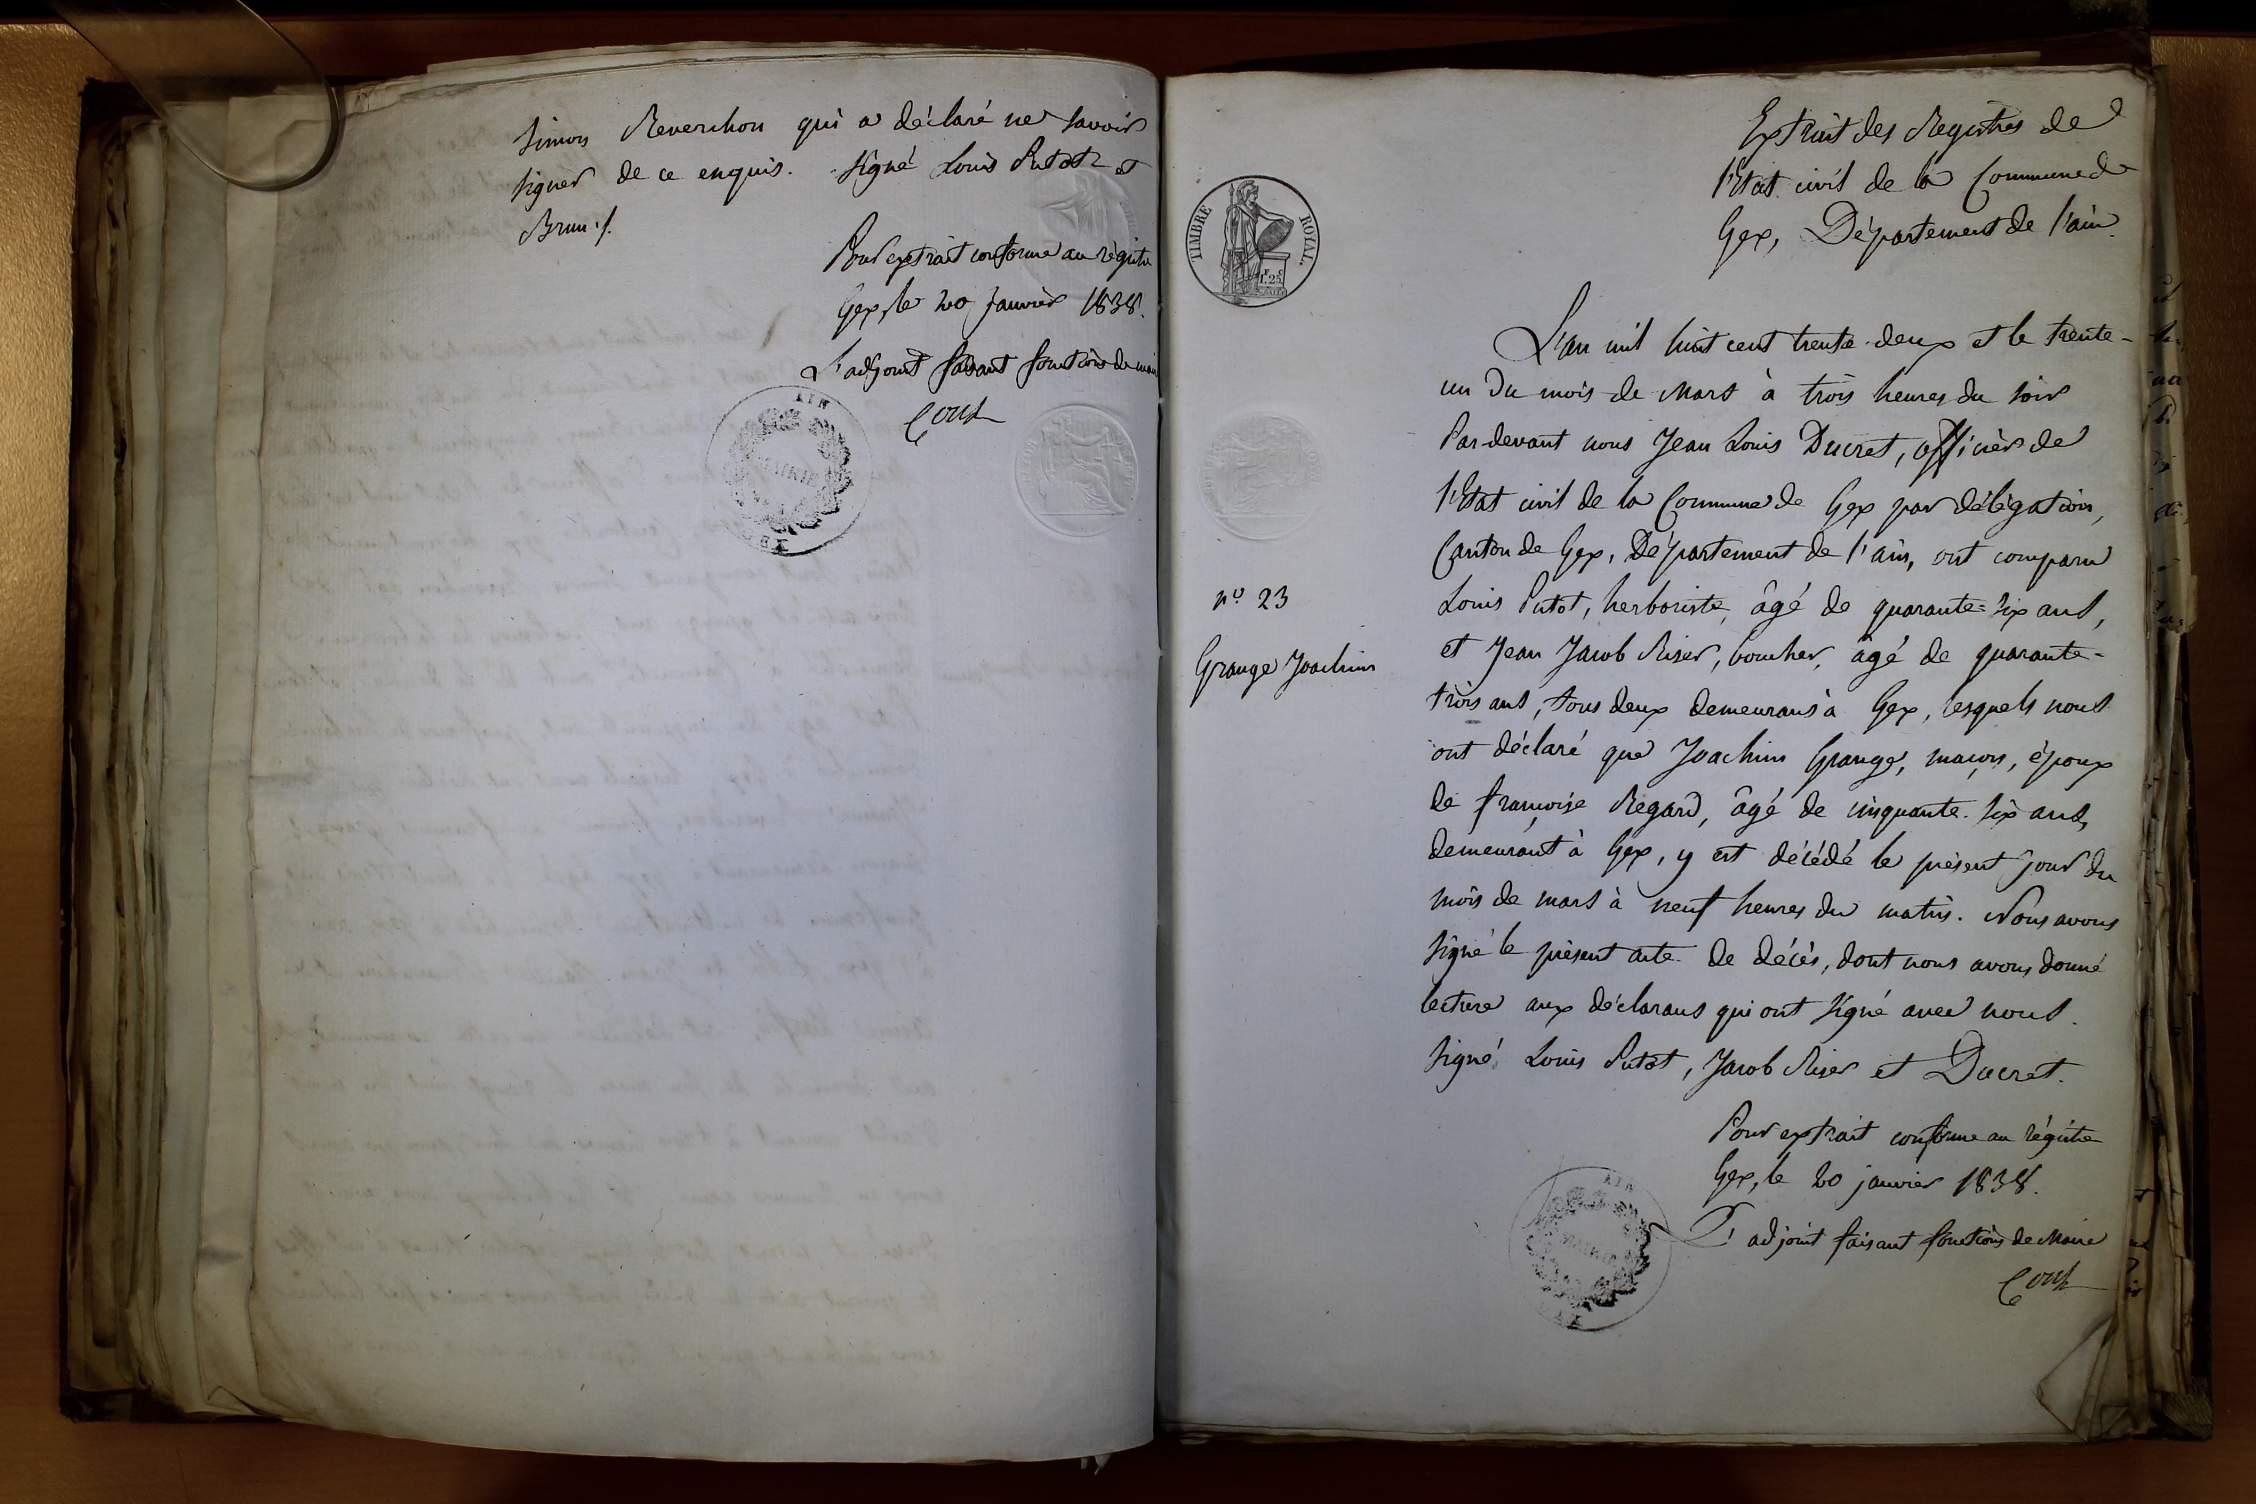 Simon Reverchon qui a déclaré ne savoir
signer de ce enquis. Signé Louis Putot et
Brun./.
Pour extrait conforme au régistre
Gex, le 20 janvier 1838.
L'adjoint faisant fonctions de maire
AIN
MAIRIE
GEX
TIMBRE ROYAL.
1f.25c
Extrait des Registres de
l'Etat civil de la Commune de
Gex, Département de l'ain.
L'an mil huit cent trente-deux et le trente-
un du mois de Mars à trois heures du soir
Par-devant nous Jean Louis Ducret, officier de
l'Etat civil de la Commune de Gex par délégation,
Canton de Gex, Département de l'ain, ont comparu
Louis Putot, herboriste, âgé de quarante-six ans,
et Jean Jacob Riser, boucher, âgé de quarante-
trois ans, tous deux demeurans à Gex, lesquels nous
ont déclaré que Joachim Grange, maçon, époux
de françoise Regard, âgé de cinquante-six ans,
demeurant à Gex, y est décédé le présent jour du
mois de mars à neuf heures du matin. Nous avons
signé le présent acte de décès, dont nous avons donné
lecture aux déclarans qui ont signé avec nous.
Signé Louis Putot, Jacob Riser et Ducret.
nº 23
Grange Joachim
Pour extrait conforme au régistre
Gex, le 20 janvier 1838.
L'adjoint faisant fonctions de Maire
AIN
MAIRIE